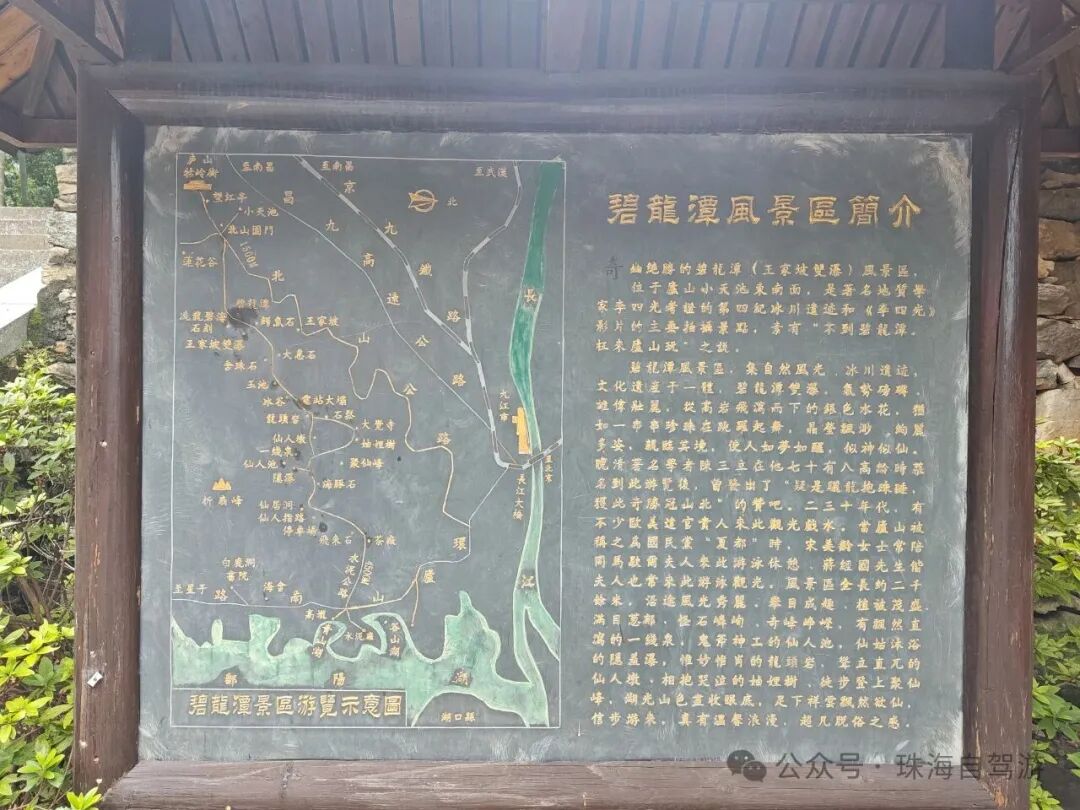 碧龍潭風景區簡介
奇山绝勝的碧龍潭（王家坡雙瀑）風景區，
位于廬山小天池東南面，是著名地質學
家李四光考證的第四紀冰川遺迹和《李四光》
影片的主要拍攝景點，素有“不到碧龍潭，
枉來廬山玩”之說。
碧龍潭風景區，集自然風光、冰川遺迹，
文化遺産于一體，碧龍潭雙瀑，氣勢磅礴，
雄偉壯麗，從高岩飛瀉而下的銀色水花，猶
如一串串珍珠在跳躍起舞，晶瑩飄渺，絢麗
多姿，親臨其境，使人如夢如醒，似神似仙。
晚清著名學者陳三立在他七十有八高齡時慕
名到此游覽後，曾發出了“疑是驪龍抱珠睡，
獲此奇勝冠山北”的贊吧。二三十年代，有
不少歐美達官貴人來此觀光戲水，當廬山被
稱之為國民黨“夏都”時，宋美齡女士常陪
同馬歇爾夫人來此游泳休憩，蔣經國先生偕
夫人也常來此游泳觀光，風景區全長約二千
餘米，沿途風光秀麗，舉目成趣，植被茂盛，
滿目蔥郁，怪石嶙峋，奇峰崢嶸，有飄然直
瀉的一綫泉，鬼斧神工的仙人池，仙姑沐浴
的隱蓋瀑，惟妙惟肖的龍頭岩，聳立直兀的
仙人墩，相抱哭泣的妯娌樹，徒步登上聚仙
峰，湖光山色盡收眼底，足下祥雲飄然欲仙，
信步游來，真有溫馨浪漫，超凡脱俗之感。
庐山
牯岭街
至南昌
至南昌
至武漢
北
望江亭
小天池
北山園門
1500M
蓮花谷
昌九高速公路
京九鐵路
長江
北山公路
碧龍潭
洗龍碧海
石刻
鳄魚石
王家坡
王家坡雙瀑
大息石
含珠石
玉池
冰谷
電站大壩
龍頭岩
石磬
大覺寺
仙人墩
妯娌樹
一綫泉
仙人池
聚仙峰
隱瀑
海豚石
折扇峰
仙居洞
仙人指路
停車場
飛來石
茶廠
九江市
至北京
長江大橋
白鹿洞
書院
海會
水泥公路
至星子
環廬山南路
高壠
水泥廠
谷山湖
鄱陽湖
湖口縣
碧龍潭景區游覽示意圖
公众号·珠海自驾游